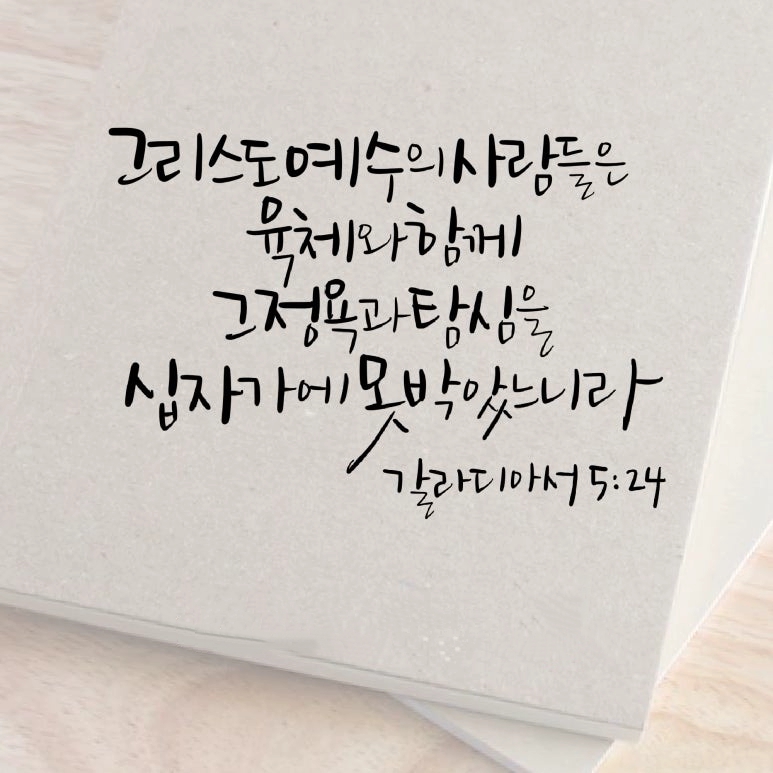 그리스도 예수의 사람들은
육체와 함께
그 정욕과 탐심을
십자가에 못 박았느니라
갈라디아서 5:24